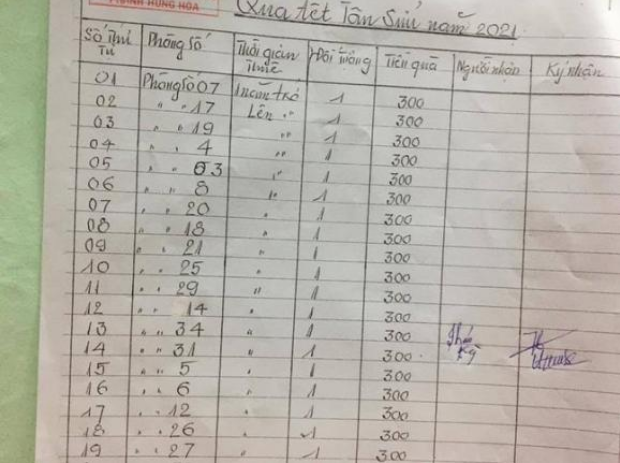 THANH HÙNG HÒA
Quà tết Tân Sửu năm 2021
Số thứ tự Phòng số Thời gian thuê Đối tượng Tiền quà Người nhận Ký nhận
01 Phòng số 07 1 300
02 " " 17 Lên " 1 300
03 " " 19 " 1 300
04 " " 4 " 1 300
05 " " 63 " 1 300
06 " " 8 " 1 300
07 " " 20 " 1 300
08 " " 18 " 1 300
09 " " 21 " 1 300
10 " " 25 " 1 300
11 " " 29 " 1 300
12 " " 14 " 1 300
13 " " 34 " 1 300
14 " " 31 " 1 300
15 " " 5 " 1 300
16 " " 6 " 1 300
17 " " 12 " 1 300
18 " " 26 " 1 300
19 " " 27 " 1 300